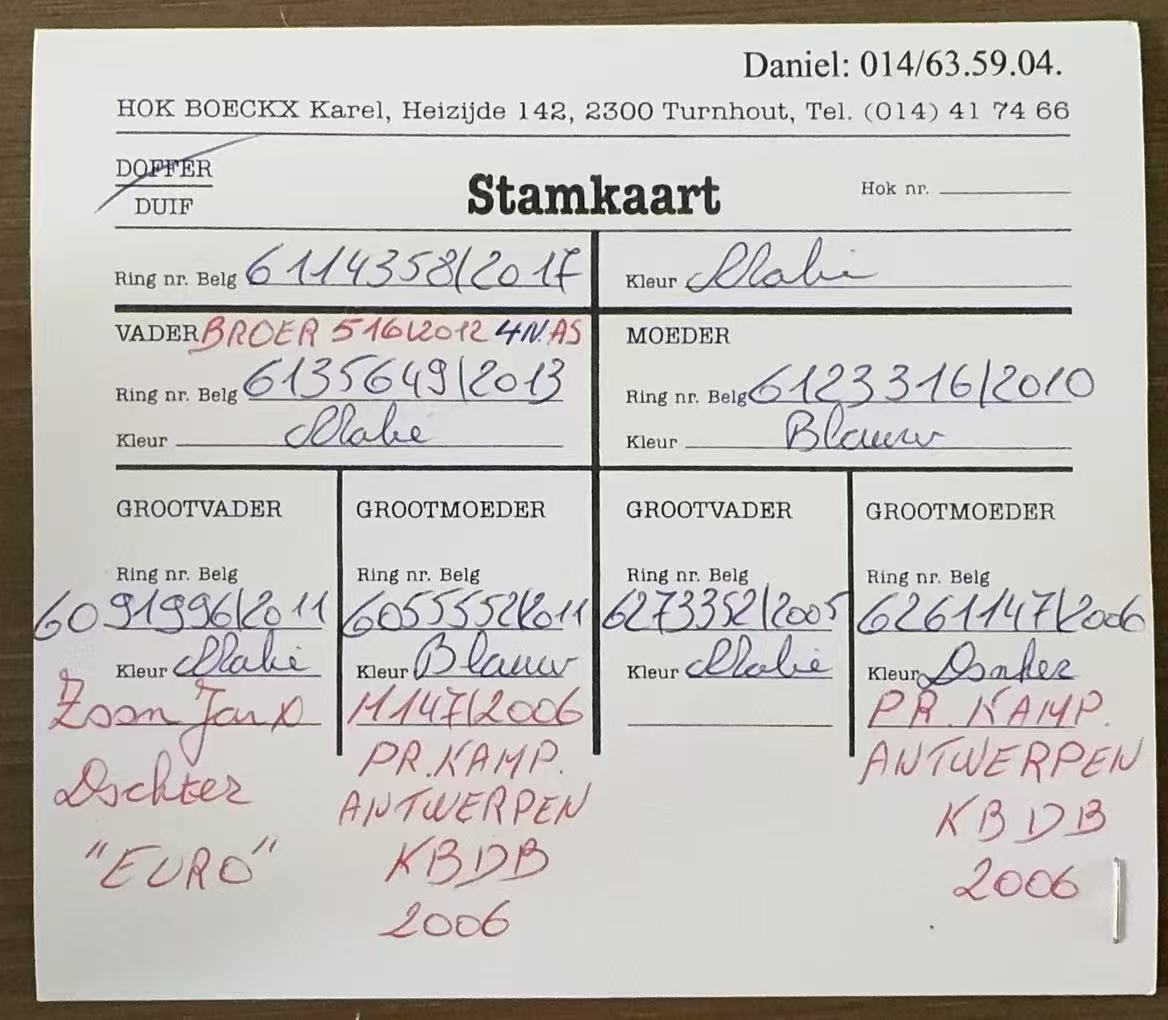 Daniel: 014/63.59.04.
HOK BOECKX Karel, Heizijde 142, 2300 Turnhout, Tel. (014) 41 74 66
DOFFER
DUIF
Stamkaart
Hok nr.
Ring nr. Belg 6114358/2017
Kleur
VADER BROER 516/2012 4N.AS
Ring nr. Belg 6135649/2013
Kleur
MOEDER
Ring nr. Belg 6123316/2010
Kleur Blauw
GROOTVADER
Ring nr. Belg
6091996/2011
Kleur
Zoon Jan x
Dochter
"EURO"
GROOTMOEDER
Ring nr. Belg
6055552/2011
Kleur Blauw
M147/2006
PR.KAMP.
ANTWERPEN
KBDB
2006
GROOTVADER
Ring nr. Belg
6273352/2005
Kleur
GROOTMOEDER
Ring nr. Belg
6261147/2006
Kleur Donker
PR. KAMP.
ANTWERPEN
KBDB
2006